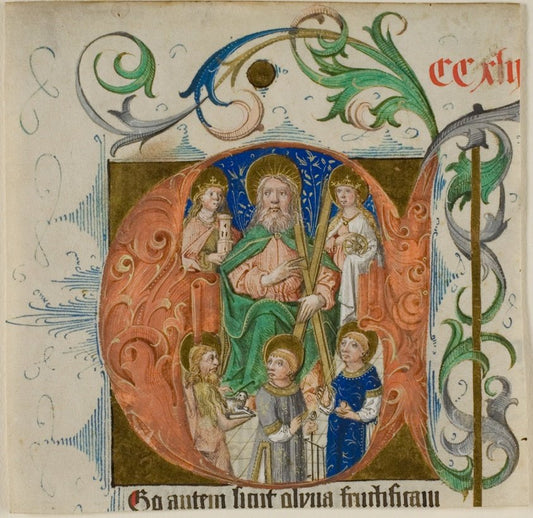 CCxlij
Go autem sicut olyua fructificaui